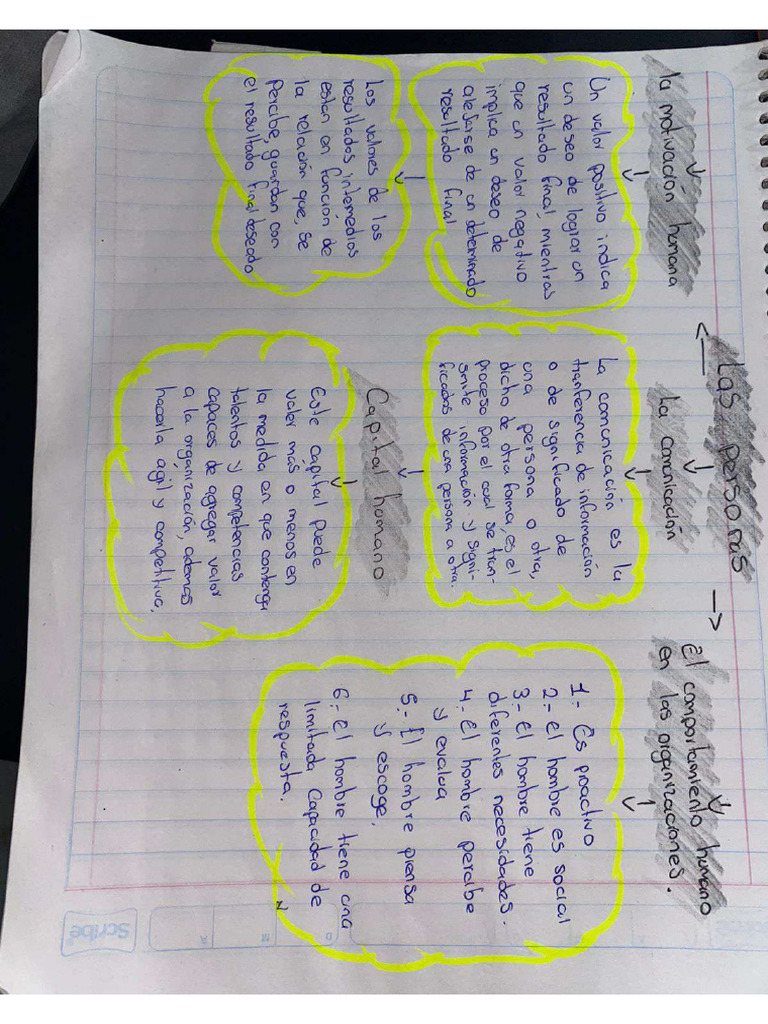 Las personas
la motivación humana
Un valor positivo indica
un deseo de lograr un
resultado final, mientras
que un valor negativo
implica un deseo de
alejarse de un determinado
resultado final
Los valores de los
resultados intemedios
estan en función de
la relación que, se
percibe, guardan con
el resultado final deseado
La comunicación
La comunicación es la
tranferencia de información
o de significado de
una persona o otra,
dicho de otra forma, es el
proceso por el cual se tran-
smite información y signi-
ficados de una persona a otra.
Capital humano
Este cápital puede
valor más o menos en
la medida en que contenga
talentos y competencias
capaces de agregar valor
a la organización, ademas
hacerla agil y competitiva.
El comportamiento humano
en las organizaciones.
1.- Es proactivo
2.- el hombre es social
3.- el hombre tiene
diferentes necesidades.
4.- El hombre percibe
y evalua
5.- El hombre piensa
y escoge,
6.- el hombre tiene una
limitada capacidad de
respuesta.
Scribe